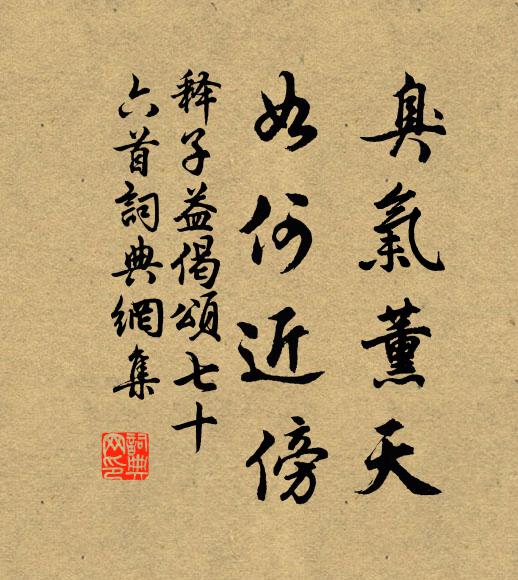 臭氣薰天
如何近傍
释子益偈頌七十
六首詞典網集
詞典
网印